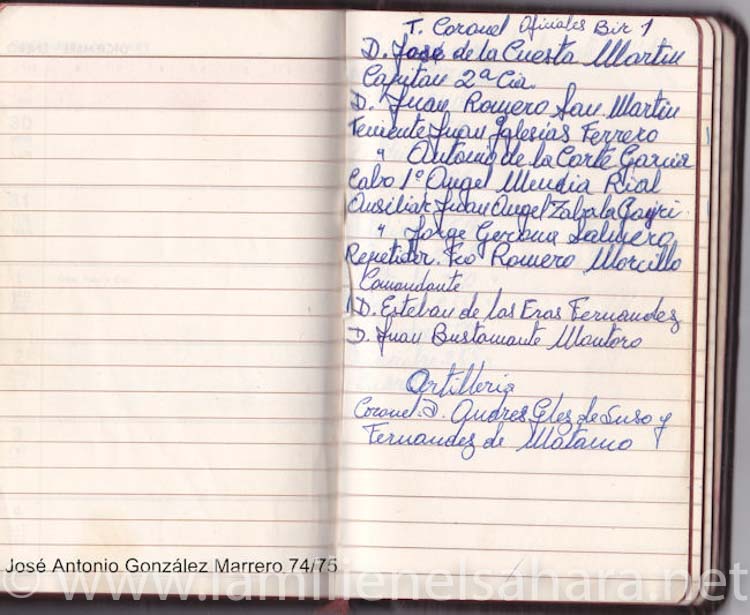 T. Coronel Oficiales Bir 1
D. José de la Cuesta Martin
Capitan 2ª Cia.
D. Juan Romero San Martin
Teniente Juan Iglesias Ferrero
" Antonio de la Corte Garcia
Cabo 1º Angel Mendia Rial
Ausiliar Juan Angel Zabala
" Jorge Gerona Salmero
Repetidor. Fco Romero Morcillo
Comandante
D. Esteban de las Eras Fernandez
D. Juan Bustamante Montoro
Artilleria
Coronel. D. Andres Glez de Suso y
Fernandez de Matauco
José Antonio González Marrero 74/75
© www.lamilienelsahara.net